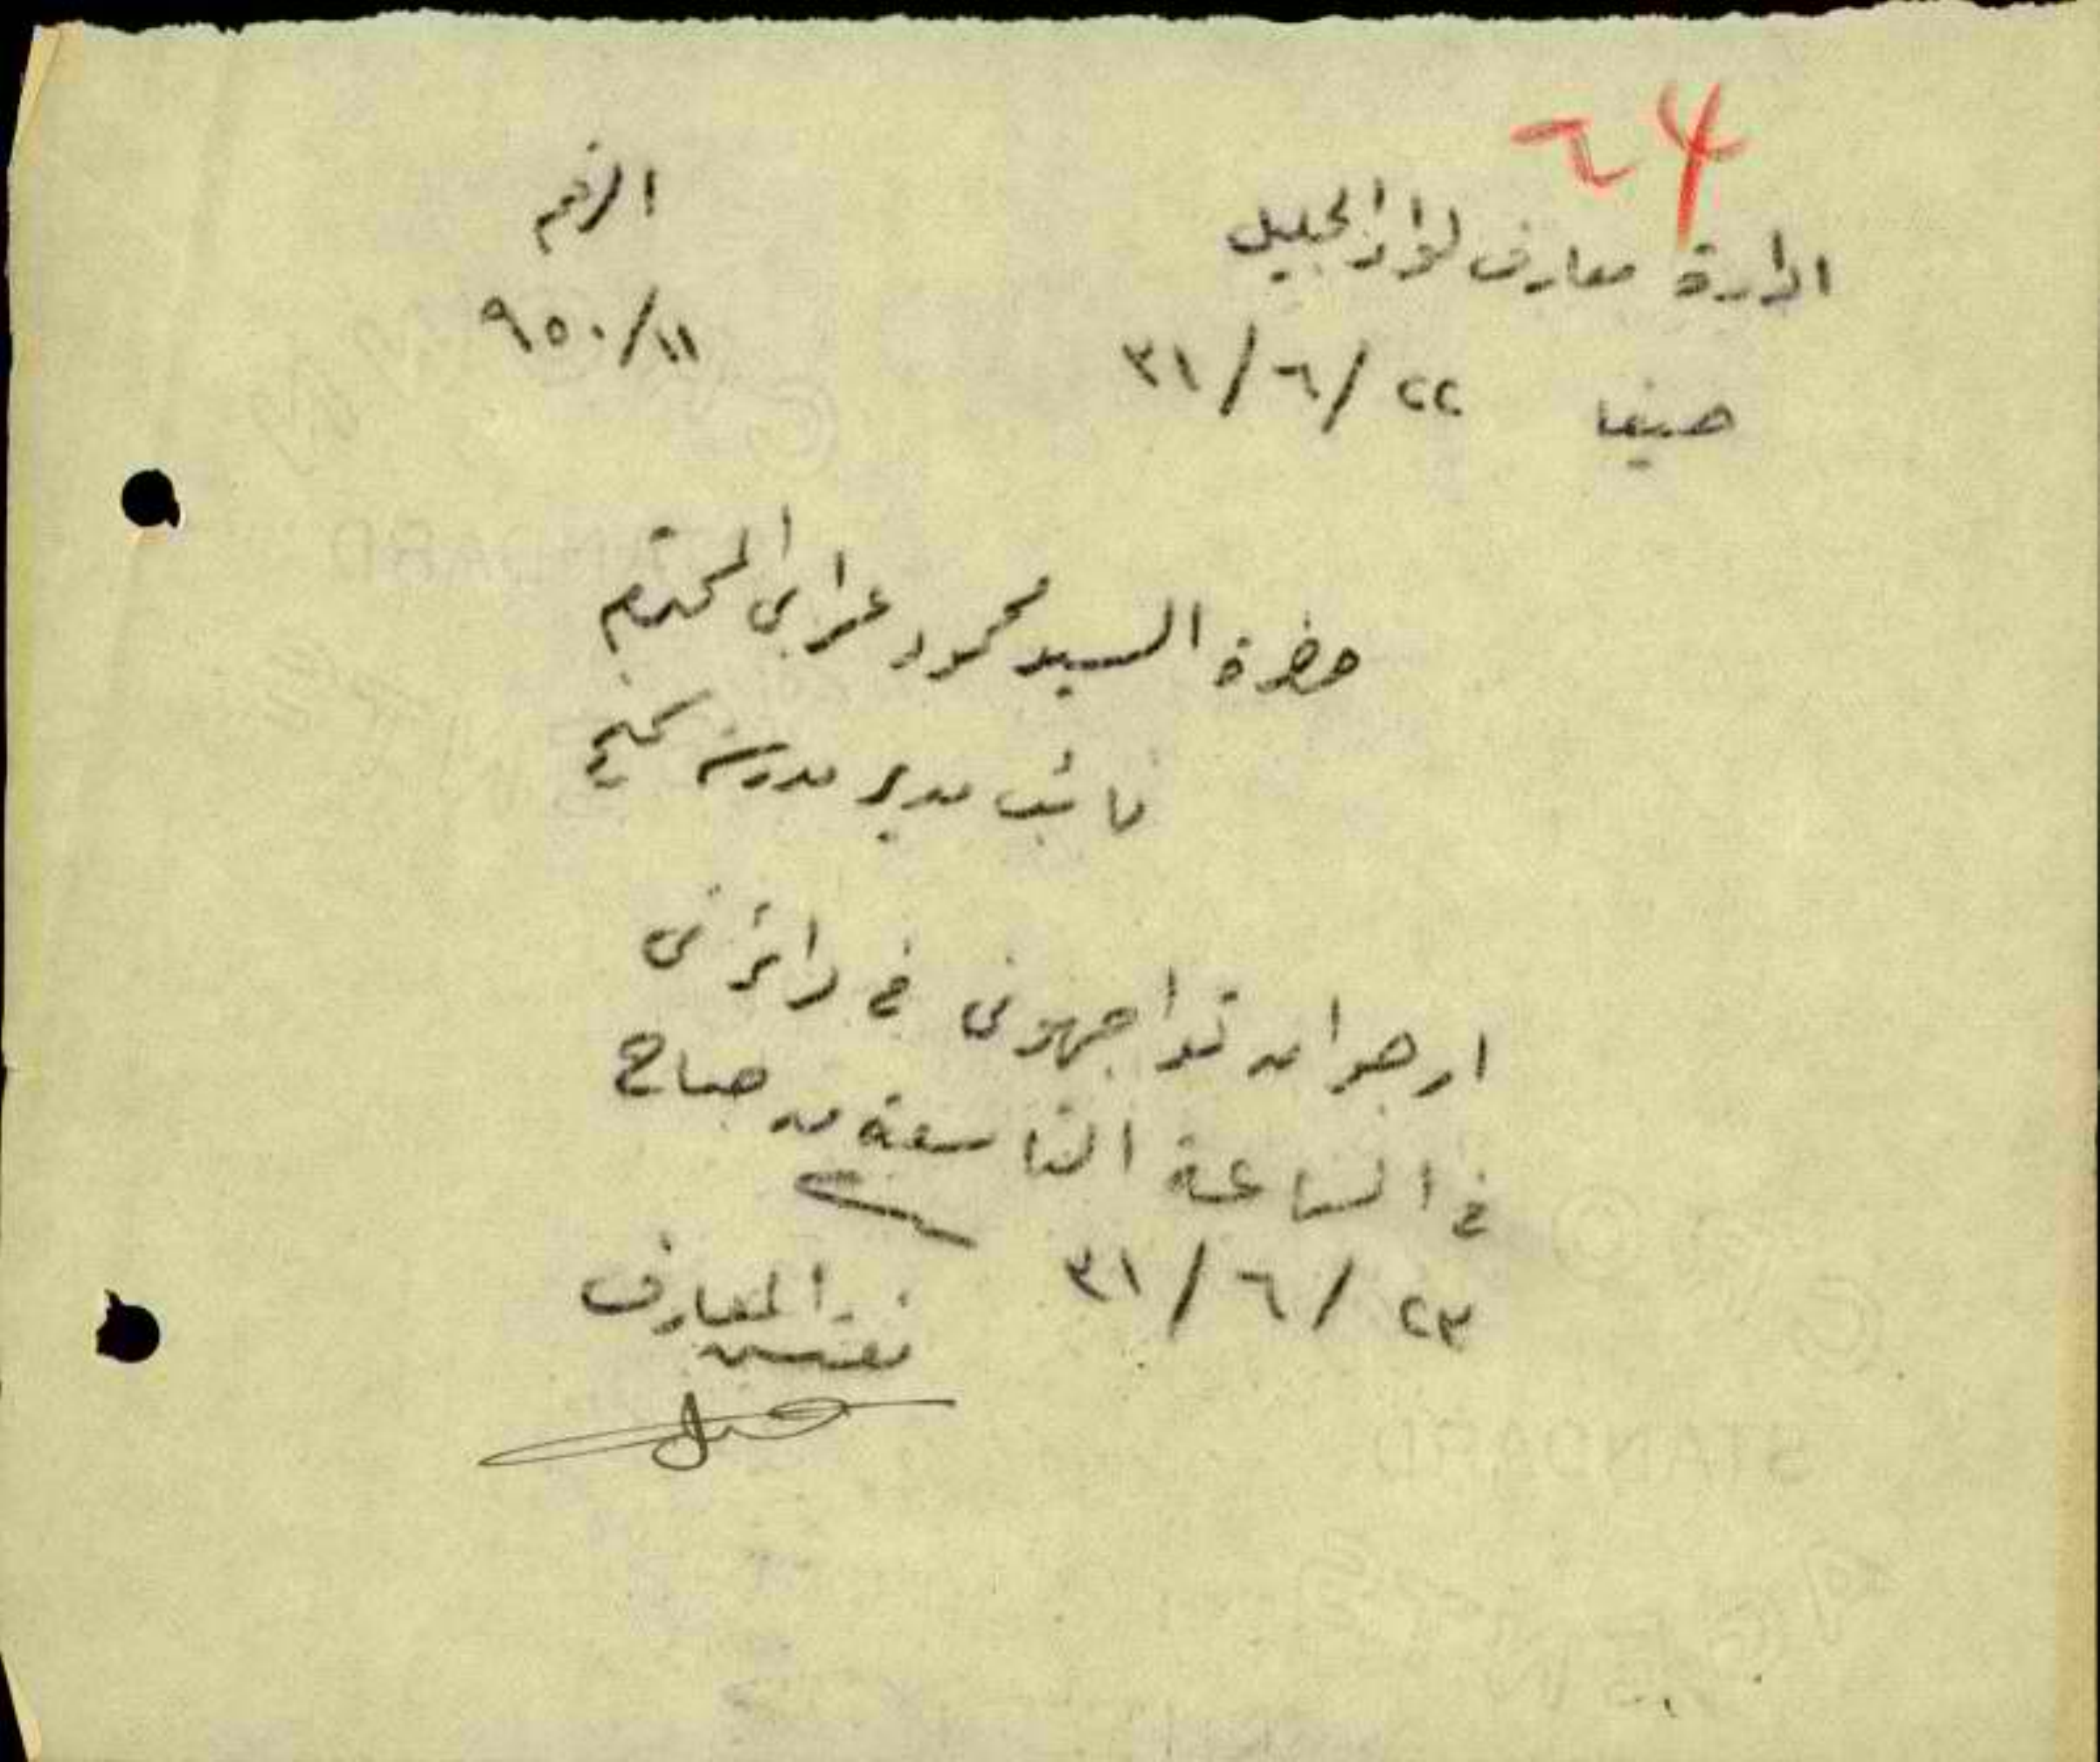 ٢٤
ادارة معارف لواء الجليل
الرقم
حيفا ٢٢/٦/٣١
٩٥٠/١١
حضرة السيد محمود عرابي المحترم
نائب مدير مدرسة
ارجو ان تواجهوني في دائرتي
في الساعة التاسعة من صباح
٢٣/٦/٣١
مفتش المعارف